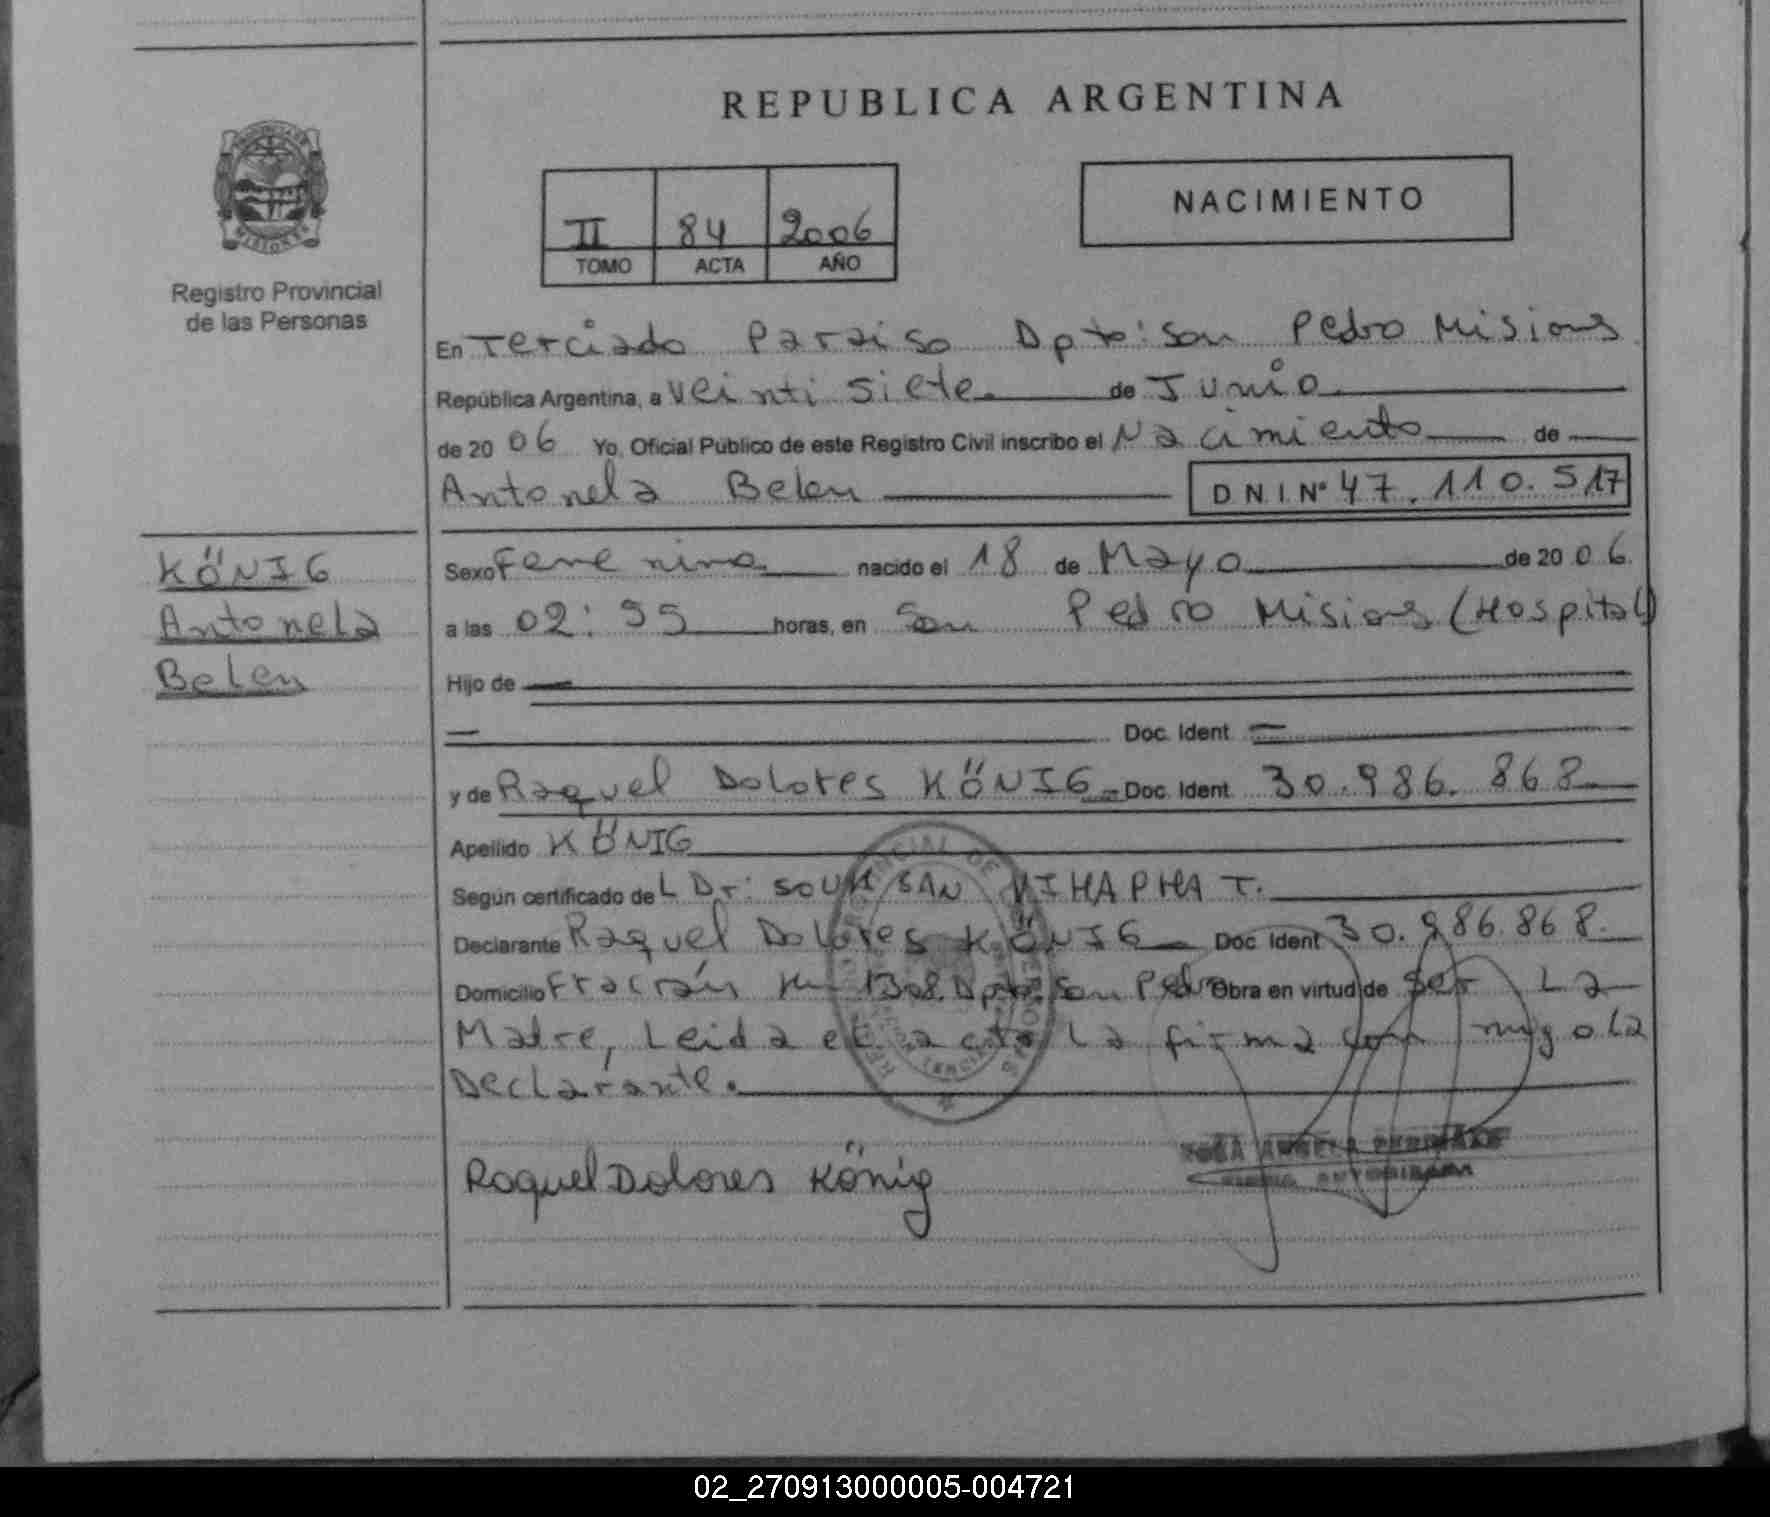 REPUBLICA ARGENTINA
PROVINCIA DE
MISIONES
Registro Provincial
de las Personas
II 84 2006
TOMO ACTA AÑO
NACIMIENTO
En Terciado Paraiso Dpto: San Pedro Misiones
República Argentina, a Veinti Siete. de Junio
de 20 06 Yo, Oficial Público de este Registro Civil inscribo el Nacimiento de
Antonela Belen D N I Nº 47.110.517
KÖNIG
Antonela
Belen
Sexo Femenino nacido el 18 de Mayo de 20 06.
a las 02:55 horas, en San Pedro Misiones (Hospital)
Hijo de
Doc. Ident.
y de Raquel Dolores KÖNIG Doc. Ident. 30.986.868
Apellido KÖNIG
Según certificado de L Dr: SOUK SAN VIHAPHAT.
Declarante Raquel Dolores KÖNIG Doc. Ident. 30.986.868.
Domicilio Fracrán Km 1308. Dpto. San Pedro Obra en virtud de Ser La
Madre, Leida el acta La firma con migo la
Declarante.
Raquel Dolores König
FIRMA AUTORIZADA
02_270913000005-004721